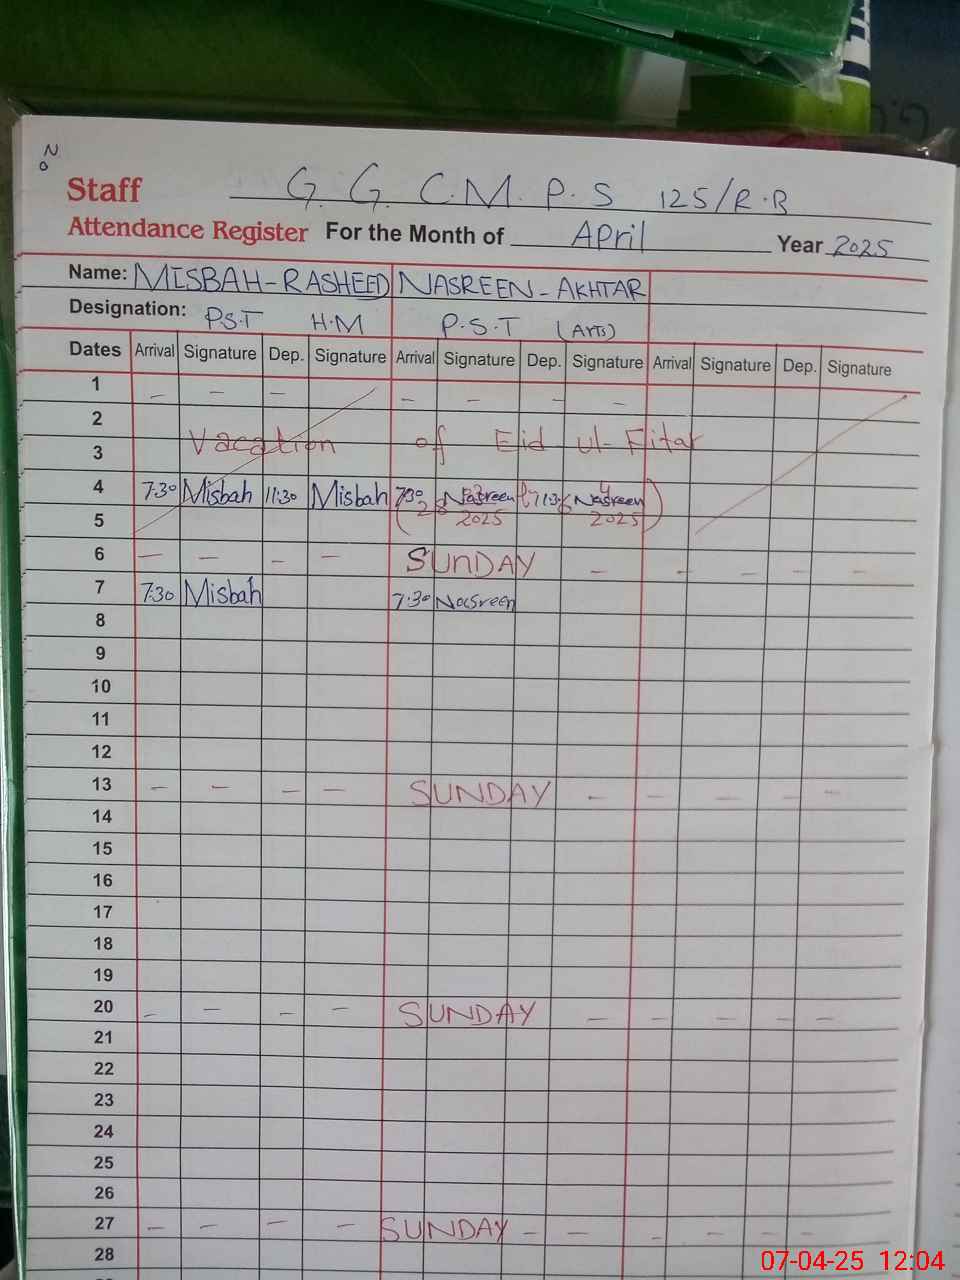 N
o
Staff G. G. C.M. P. S 125/R.B
Attendance Register For the Month of April Year 2025
Name: MISBAH-RASHEED NASREEN-AKHTAR
Designation: P.S.T H.M P.S.T (Arts)
Dates Arrival Signature Dep. Signature Arrival Signature Dep. Signature Arrival Signature Dep. Signature
1 - - - - - - -
2
Vacation of Eid ul-Fitar
3
4 7:30 Misbah 11:30 Misbah 7:30 Nasreen 11:30 Nasreen
5 2025 2025
6 - - - - SUNDAY - - - - -
7 7:30 Misbah 7:30 Nasreen
8
9
10
11
12
13 - - - - SUNDAY - - - - -
14
15
16
17
18
19
20 - - - - SUNDAY - - - - -
21
22
23
24
25
26
27 - - - - SUNDAY - - - - - -
28
07-04-25 12:04